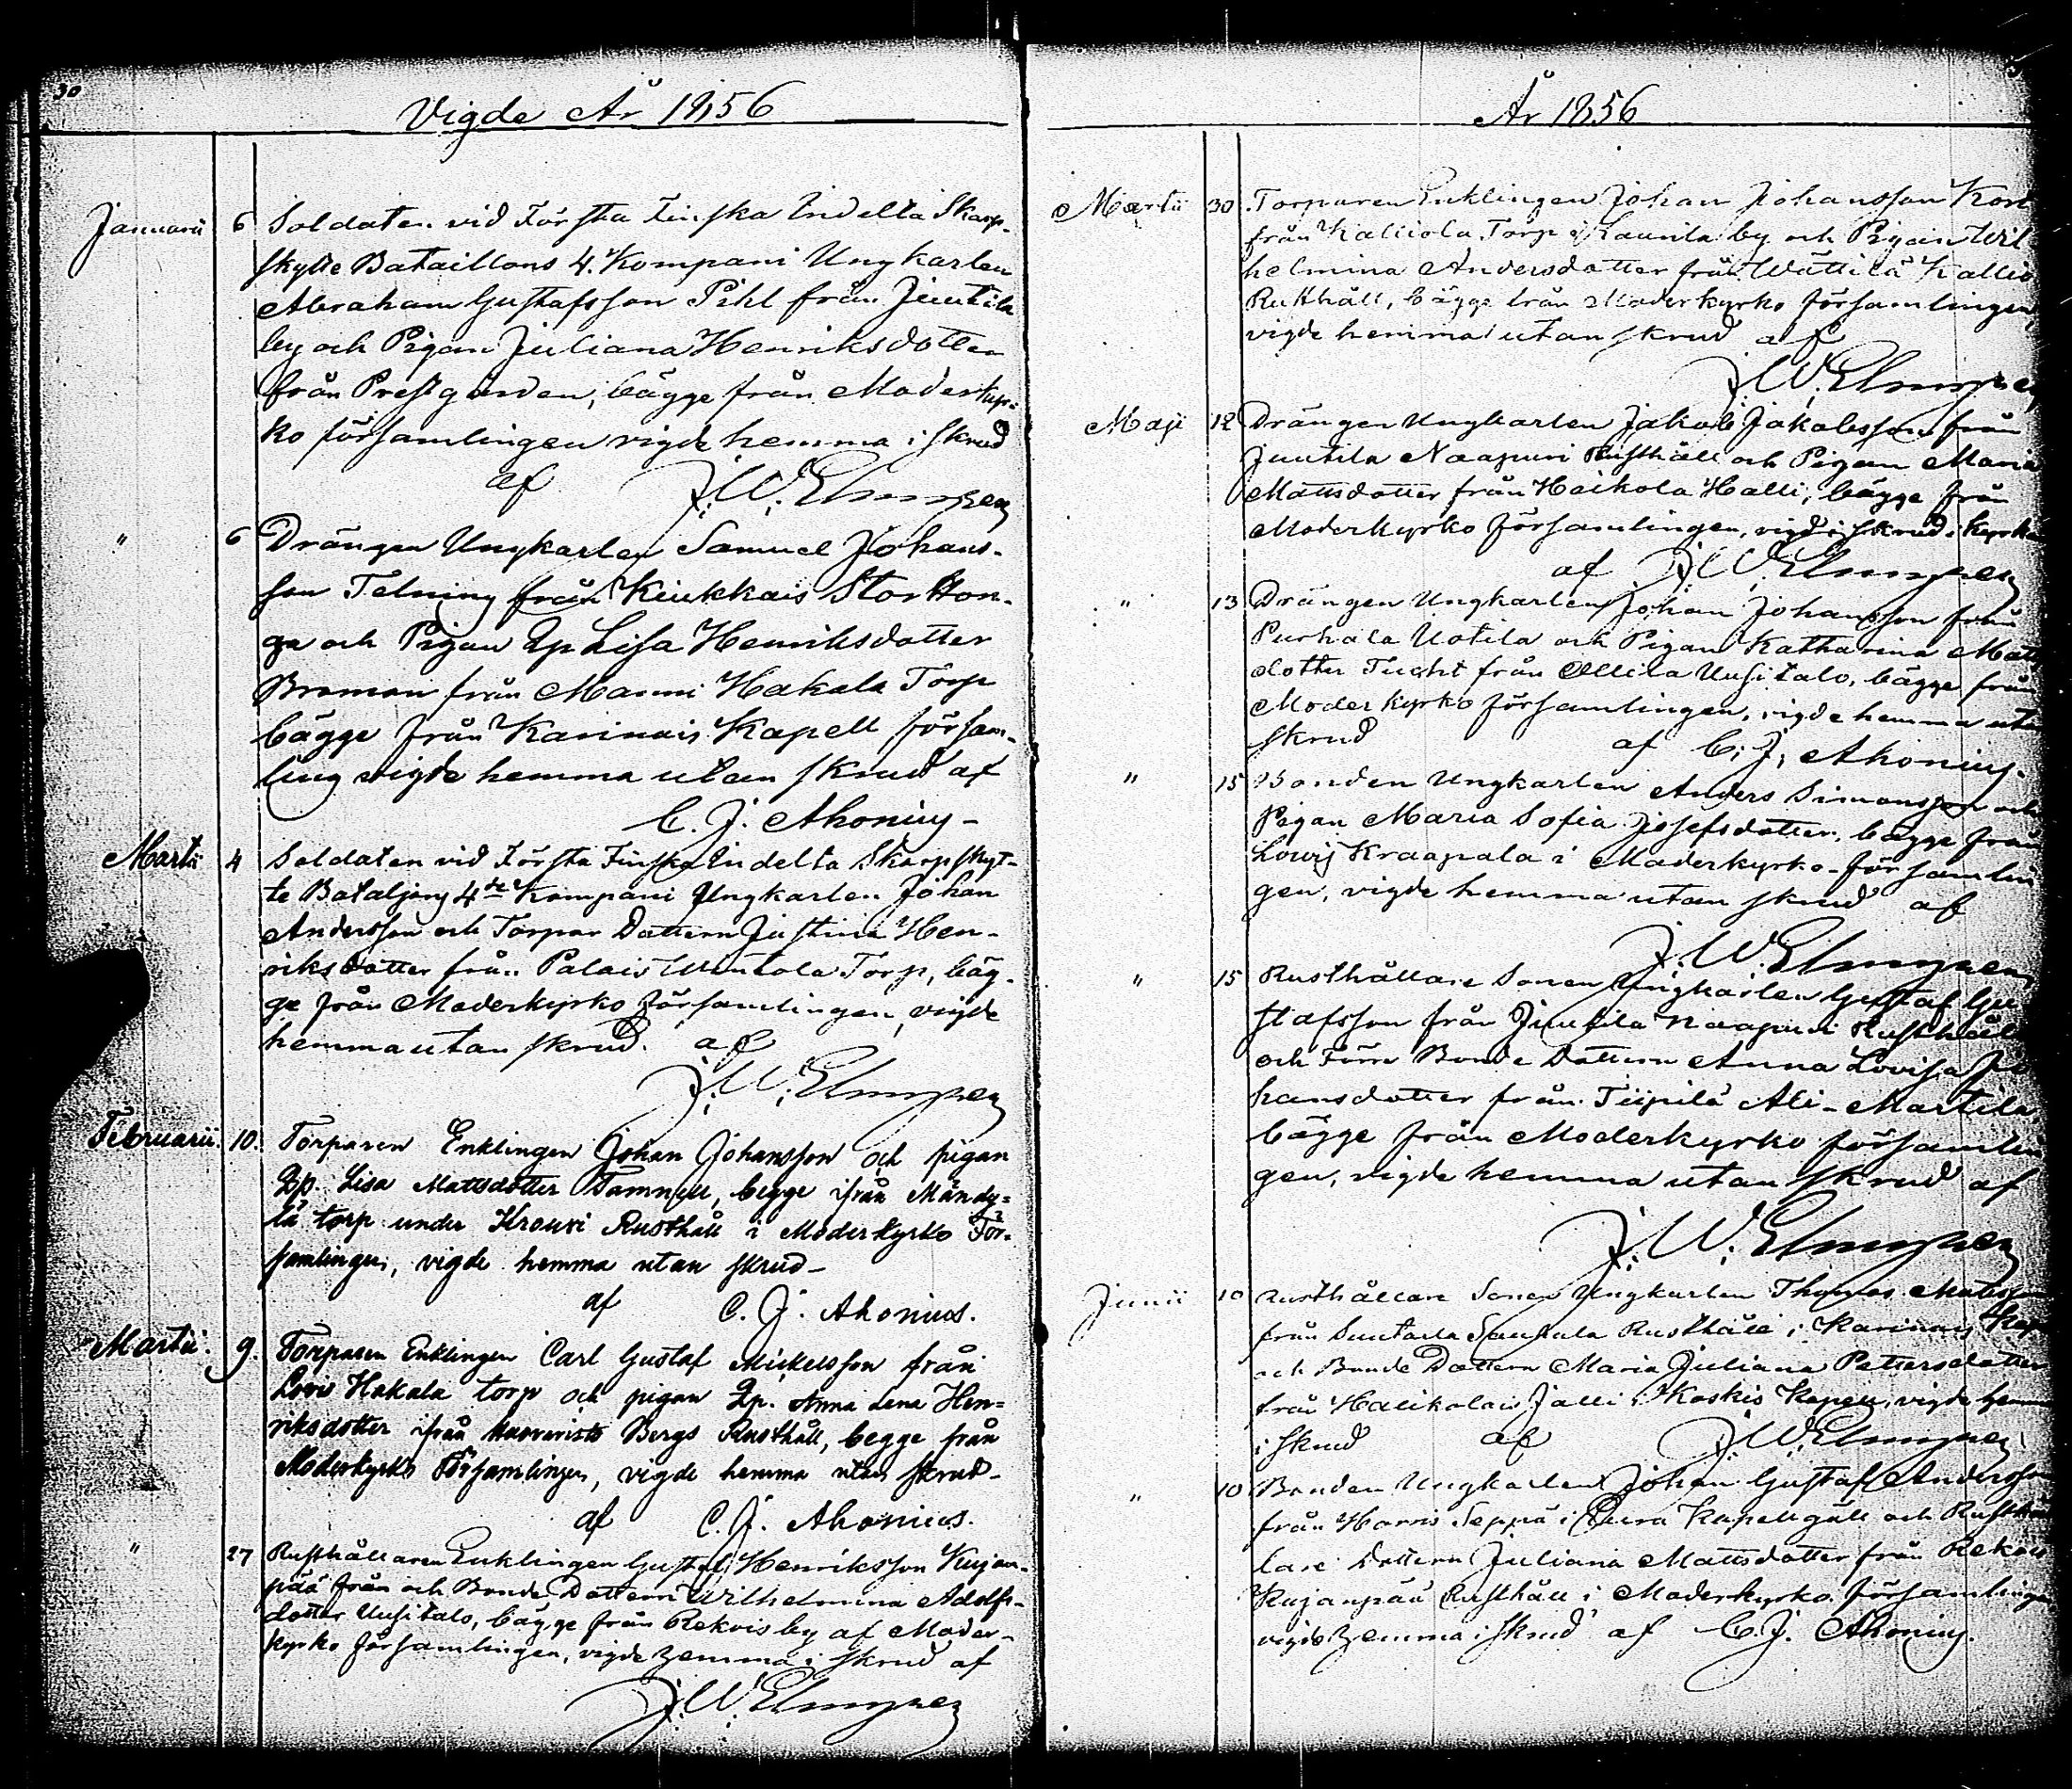 30
Vigde År 1856
Januarii 6 Soldaten vid Första Finska Indelta Skarp-
skytte Bataillons 4. Kompani Ungkarlen
Abraham Gustafsson Pihl från Juutila
by och Pigan Juliana Henriksdotter
från Prestgården, bägge från Moderkyr-
ko församlingen vigde hemma i skrud
af J. W. Elmgren
" 6 Drängen Ungkarlen Samuel Johans-
son Telning från Kiukkais Storkon-
ga och Pigan Qp Lisa Henriksdotter
Broman från Manni Hakala Torp
bägge från Karinais Kapell försam-
ling vigde hemma utan skrud af
C. J. Ahonius
Martii 4 Soldaten vid Första Finska Indelta Skarpskyt-
te Bataljons 4de Kompani Ungkarlen Johan
Andersson och Torpar Dottern Justina Hen-
riksdotter från Palais Wintola Torp, bäg-
ge från Moderkyrko församlingen, vigde
hemma utan skrud. af
J. W. Elmgren
Februarii. 10. Torparen Enklingen Johan Johansson och pigan
Qp. Lisa Mattsdotter Tamnell, begge ifrån Mändy=
lä torp under Krouvi Rusthåll i Moderkyrko För=
samlingen, vigde hemma utan skrud—
af C. J. Ahonius.
Martii. 9. Torparen Enklingen Carl Gustaf Mickelsson från
Lovis Hakala torp och pigan Qp. Anna Lena Hen=
riksdotter ifrån Bergs Rusthåll, begge från
Moderkyrko Församlingen, vigde hemma utan skrud—
af C. J. Ahonius.
" 27 Rusthållaren Enklingen Gustaf Henriksson Kujan-
pää från och Bonde Dottern Wilhelmina Adolfs-
dotter Uusitalo, bägge från Rekois by af Moder-
kyrko församlingen, vigde hemma i skrud af
J. W. Elmgren
År 1856
Martii 30 Torparen Enklingen Johan Johansson
från Kalliola Torp i Laurila by och Pigan Wil
helmina Andersdotter från Wättilä Kallio
Rusthåll, bägge från Moderkyrko församlingen,
vigde hemma utan skrud af
J. W. Elmgren
Maji 12 Drängen Ungkarlen Jakob Jakobsson från
Juutila Naapuri Rusthåll och Pigan Maria
Mattsdotter från Haikola Halli, bägge från
Moderkyrko församlingen, vigd i skrud i kyrka
af J. W. Elmgren
" 13 Drängen Ungkarlen Johan Johansson från
Purhala Uotila och Pigan Katharina Matts
dotter från Ollila Uusitalo, bägge från
Moderkyrko församlingen, vigde hemma utan
skrud af C. J. Ahonius.
" 15 Bonden Ungkarlen Anders Simonsson och
Pigan Maria Sofia Josefsdotter, bägge från
Lovis Kraapala i Moderkyrko-församlin
gen, vigde hemma utan skrud af
J. W. Elmgren
" 15 Rusthållare Sonen Ungkarlen Gustaf Gu
stafsson från Juutila Naapuri Rusthåll
och Förre Bonde Dottern Anna Lovisa Jo
hansdotter från Tiipilä Ali-Martila
bägge från Moderkyrko församlin
gen, vigde hemma utan skrud af
J. W. Elmgren
Junii 10 Rusthållare Sonen Ungkarlen Thomas Matsson
från Suutarla Rusthåll i Karinais Kap
och Bonde Dottern Maria Juliana Pettersdotter
från Halikolais Jalli i Koskis Kapell, vigde hemma
i skrud af J. W. Elmgren
" 10 Bonden Ungkarlen Johan Gustaf Andersson
från Harris Seppä i Eura Kapellgäll och Rusthål
lare Dottern Juliana Mattsdotter från Rekois
Kujanpää Rusthåll i Moderkyrko församlingen
vigde hemma i skrud af C. J. Ahonius.